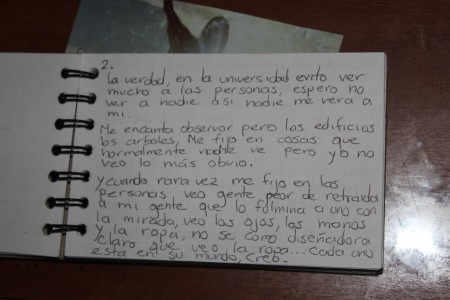 2.
la verdad, en la universidad evito ver
mucho a las personas, espero no
ver a nadie asi nadie me vera a
mi.
Me encanta observar pero los edificios
los arboles, Me fijo en cosas que
normalmente nadie ve pero yo no
veo lo más obvio.
y cuando rara vez me fijo en las
personas, veo gente peor de retraida
a mi gente que lo fulmina a uno con
la mirada, veo los ojos, las manos
y la ropa, no se como diseñadora
claro que veo la ropa... Cada uno
esta en su mundo, creo.